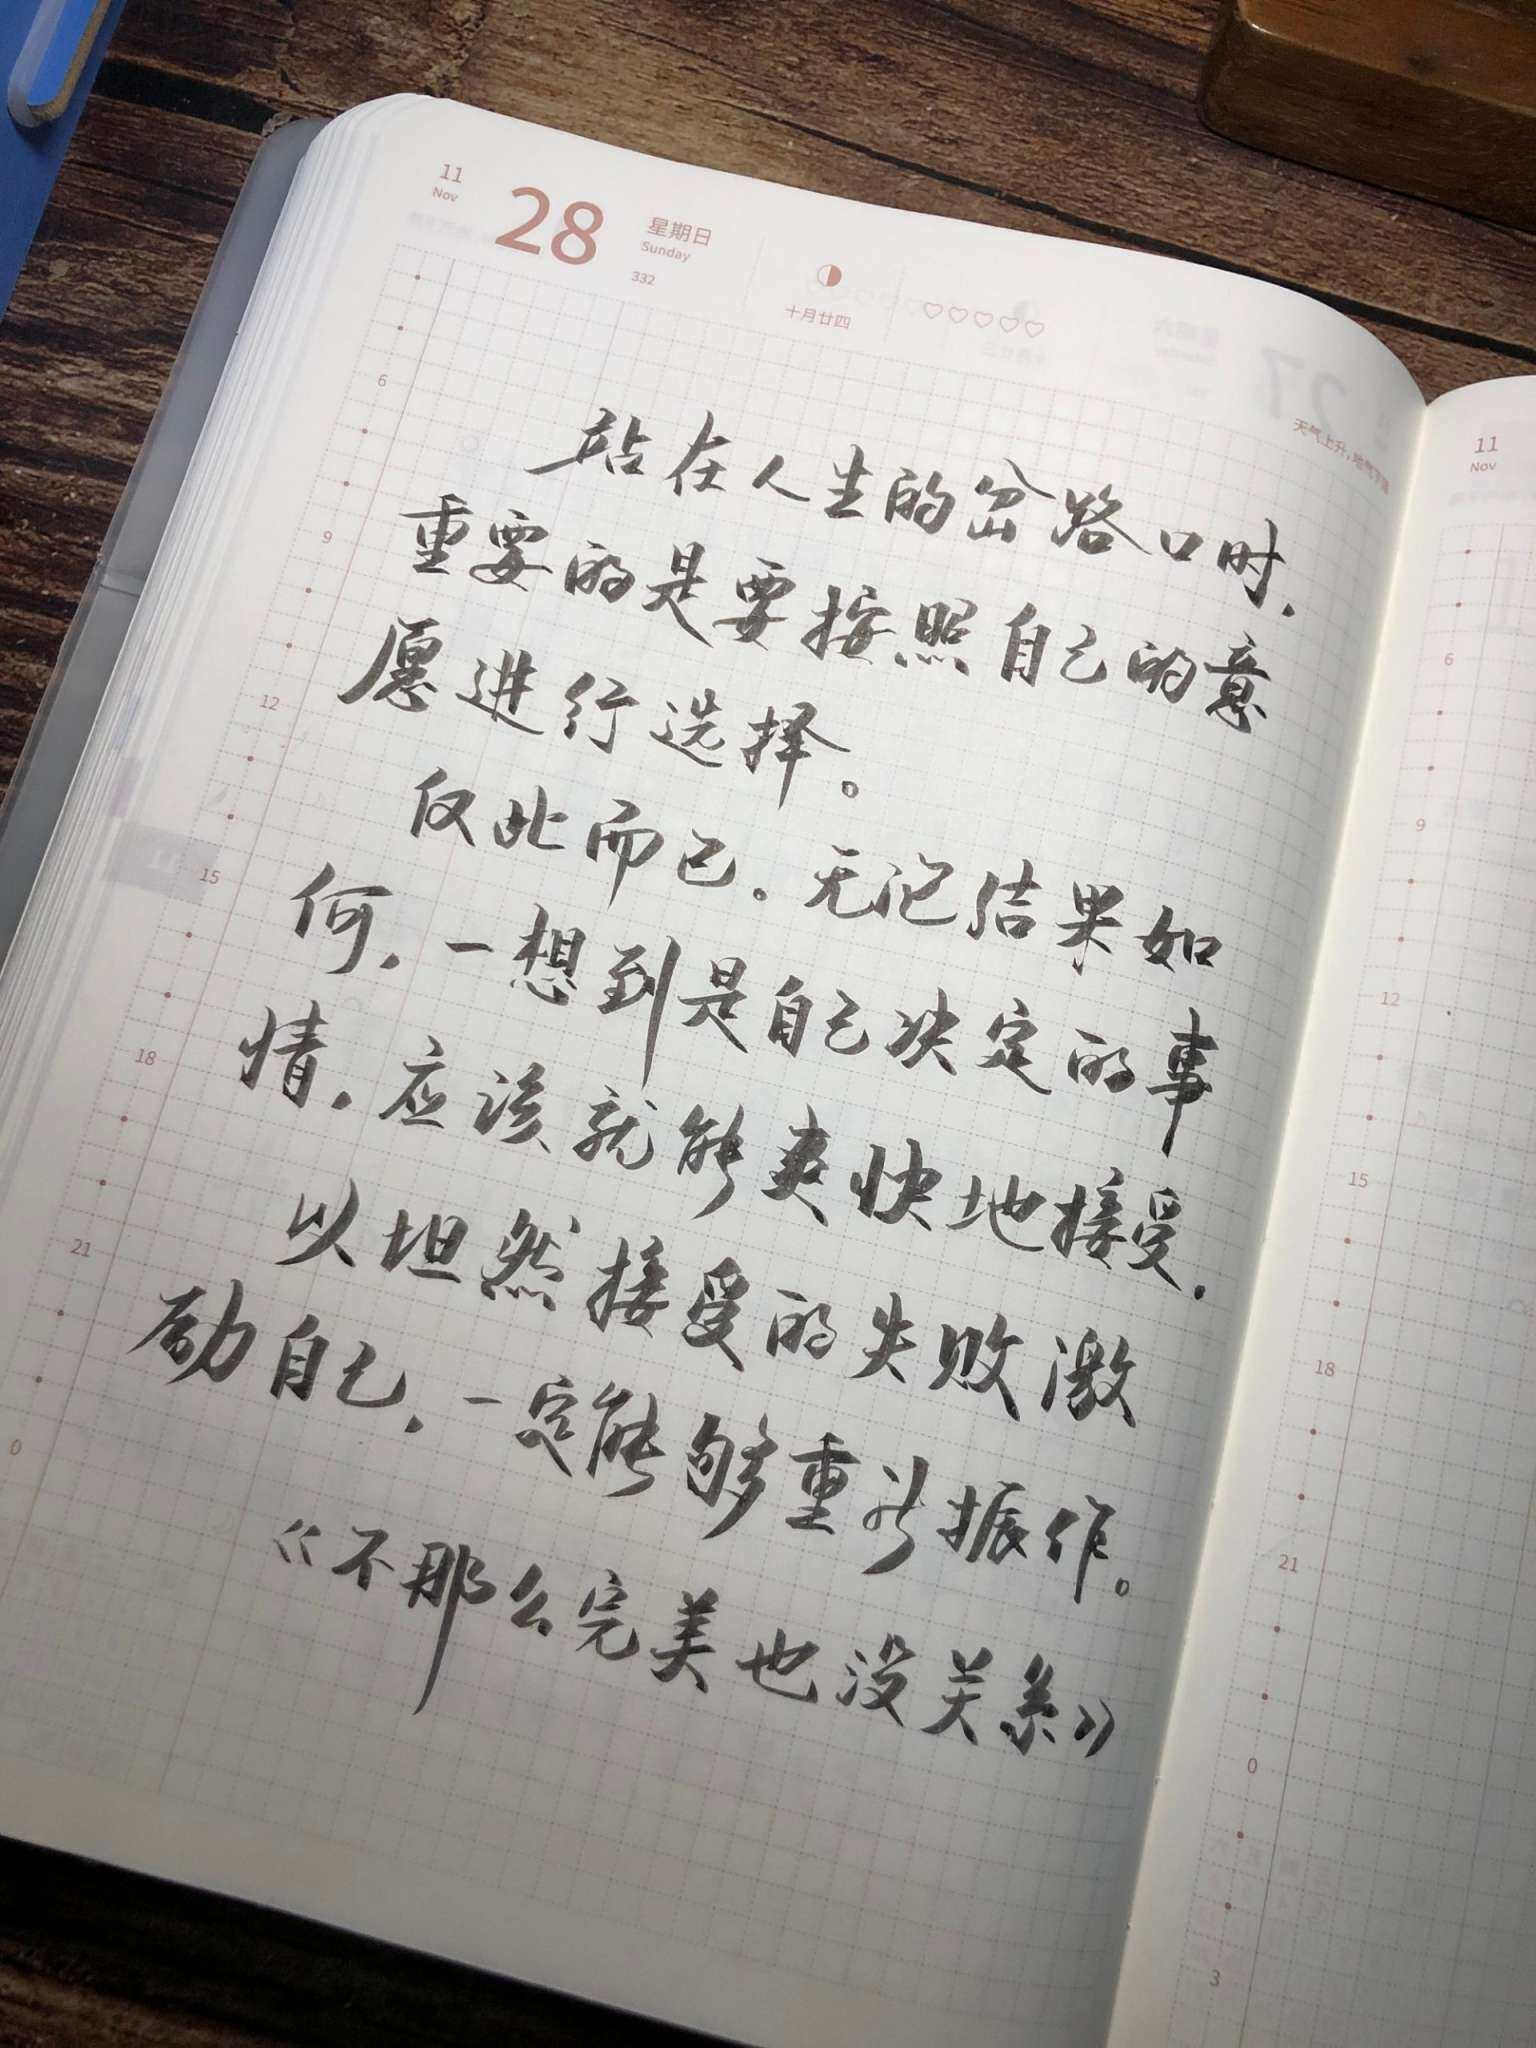 11
Nov
28
星期日
Sunday
332
十月廿四
天气上升,地气下降
站在人生的岔路口时,
重要的是要按照自己的意
愿进行选择。
仅此而已。无论结果如
何,一想到是自己决定的事
情,应该就能爽快地接受,
以坦然接受的失败激
励自己,一定能够重新振作。
《不那么完美也没关系》
6
9
12
15
18
21
0
11
Nov
6
9
12
15
18
21
0
3